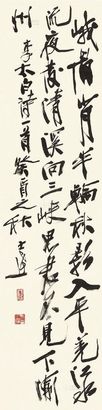 峨眉山月半輪秋影入平羌江水
流夜發清溪向三峽思君不見下渝
州 李太白詩一首 之秋